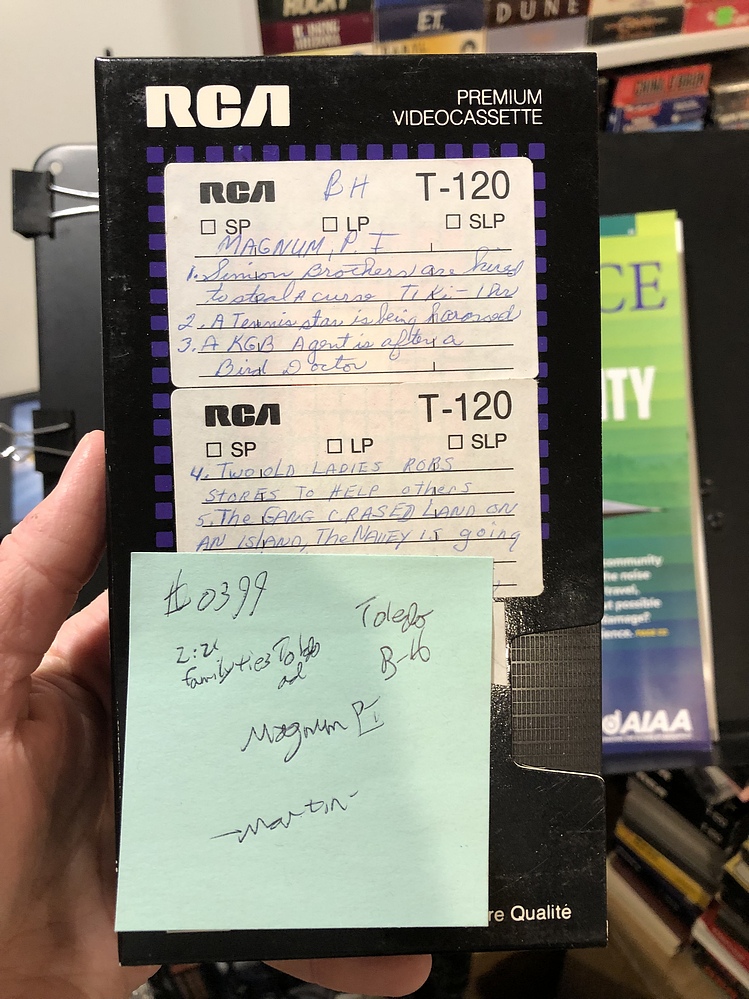 ROCKY
E.T.
DUNE
RCA
PREMIUM
VIDEOCASSETTE
RCA BH T-120
SP LP SLP
MAGNUM, P I
1. Simion Brothers are hired
to steal A curse Ti Ki - 1 Hr
2. A Tennis star is being harassed
3. A KGB Agent is after a
Bird Doctor
RCA T-120
SP LP SLP
4. TWO OLD LADIES ROBS
STORES TO HELP others
5. The GANG CRASED LAND ON
AN ISLAND, The NAVEY is going
#0399
Toledo
family ties Toledo
ad
Magnum PI
-Martin-
re Qualité
CE
ITY
community
the noise
travel,
possible
damage?
AIAA